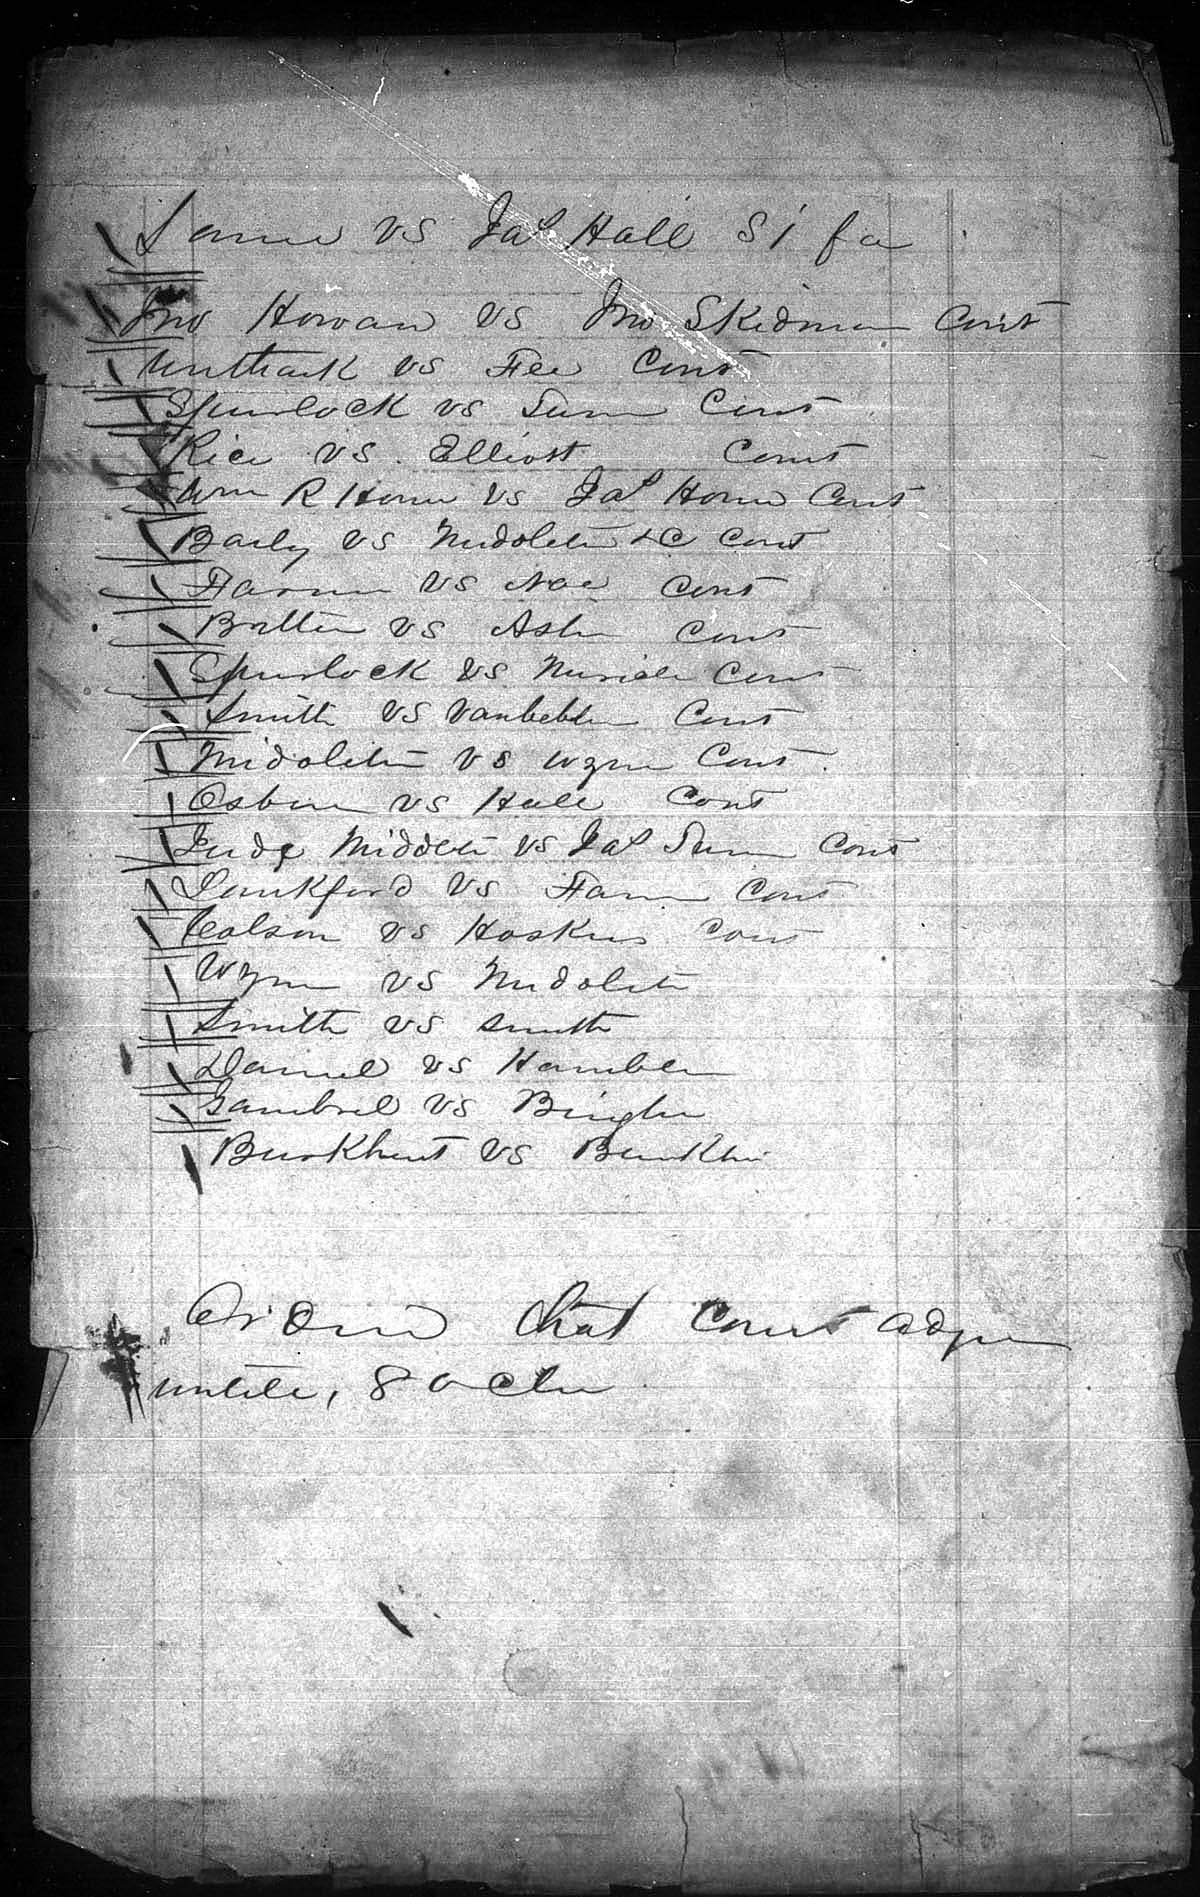 Same vs Jas Hall Si fa
Jno Howard vs Jno Skidmore Cont
Unthank vs Fee Cont
Spurlock vs Turner Cont
Rice vs Elliott Cont
Wm R Horn vs Jas Horn Cont
Baily vs Midoleton &C Cont
Farmer vs Noe Cont
vs Asher Cont
Spurlock vs Cont
Smith vs Vanbebber Cont
Midoleton vs Wynn Cont
Osborn vs Hall Cont
Judge Middleton vs Jas Turner Cont
Lankford vs Farmer Cont
Colson vs Hoskins Cont
Wynn vs Midoleton
Smith vs Smith
Daniel vs Hamblen
Gambrel vs Bingham
Burkhart vs Burkhart
Ordered that Court adjourn
untill, 8 oclock